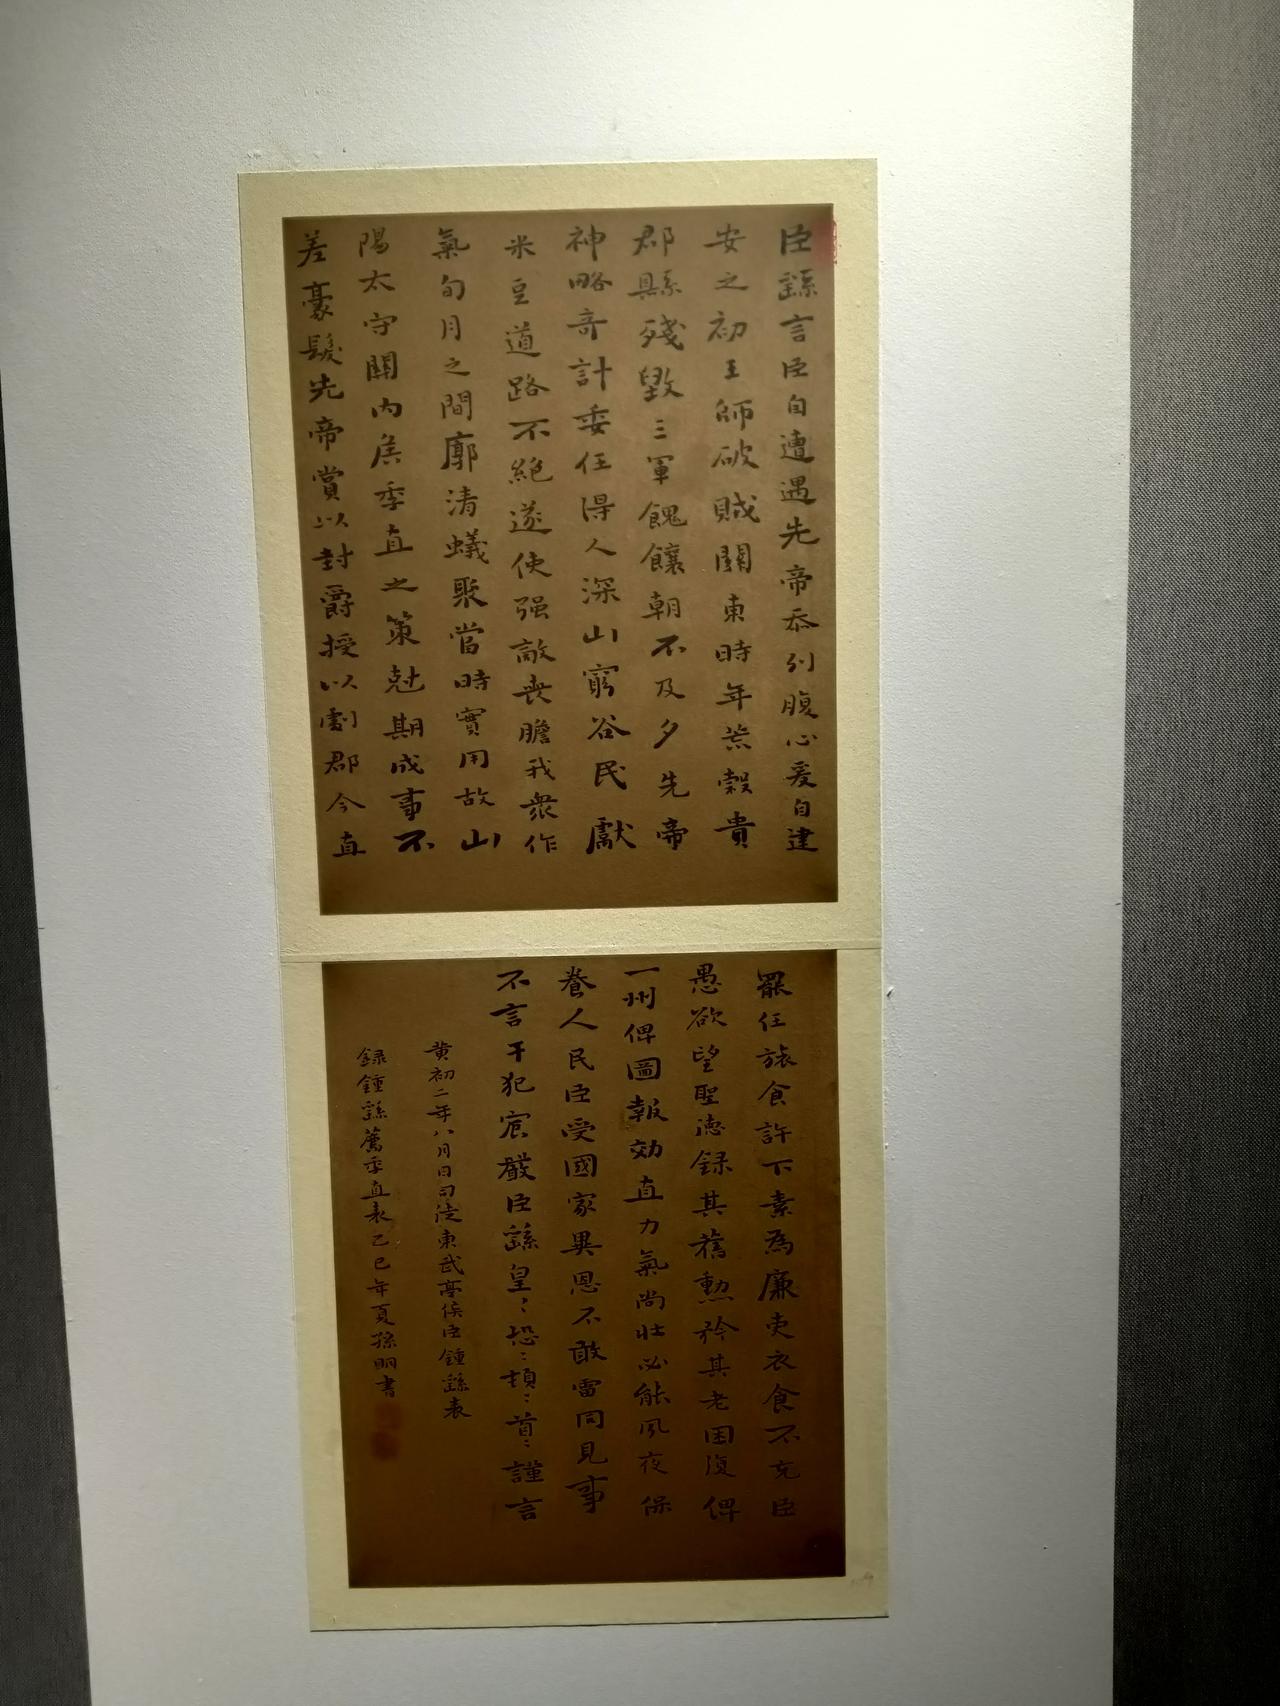 臣繇言臣自遭遇先帝忝列腹心爰自建
安之初王師破賊關東時年荒穀貴
郡縣殘毀三軍餽饟朝不及夕先帝
神略奇計委任得人深山窮谷民獻
米豆道路不絕遂使强敵喪膽我衆作
氣旬月之間廓清蟻聚當時實用故山
陽太守關內侯季直之策尅期成事不
差豪髮先帝賞以封爵授以劇郡今直
罷任旅食許下素為廉吏衣食不充臣
愚欲望聖德録其舊勳矜其老困復俾
一州俾圖報効直力氣尚壯必能夙夜保
養人民臣受國家異恩不敢雷同見事
不言干犯宸嚴臣繇皇:恐:頓:首:謹言
黃初二年八月日司徒東武亭侯臣鍾繇表
録鍾繇薦季直表乙巳年夏孫明書